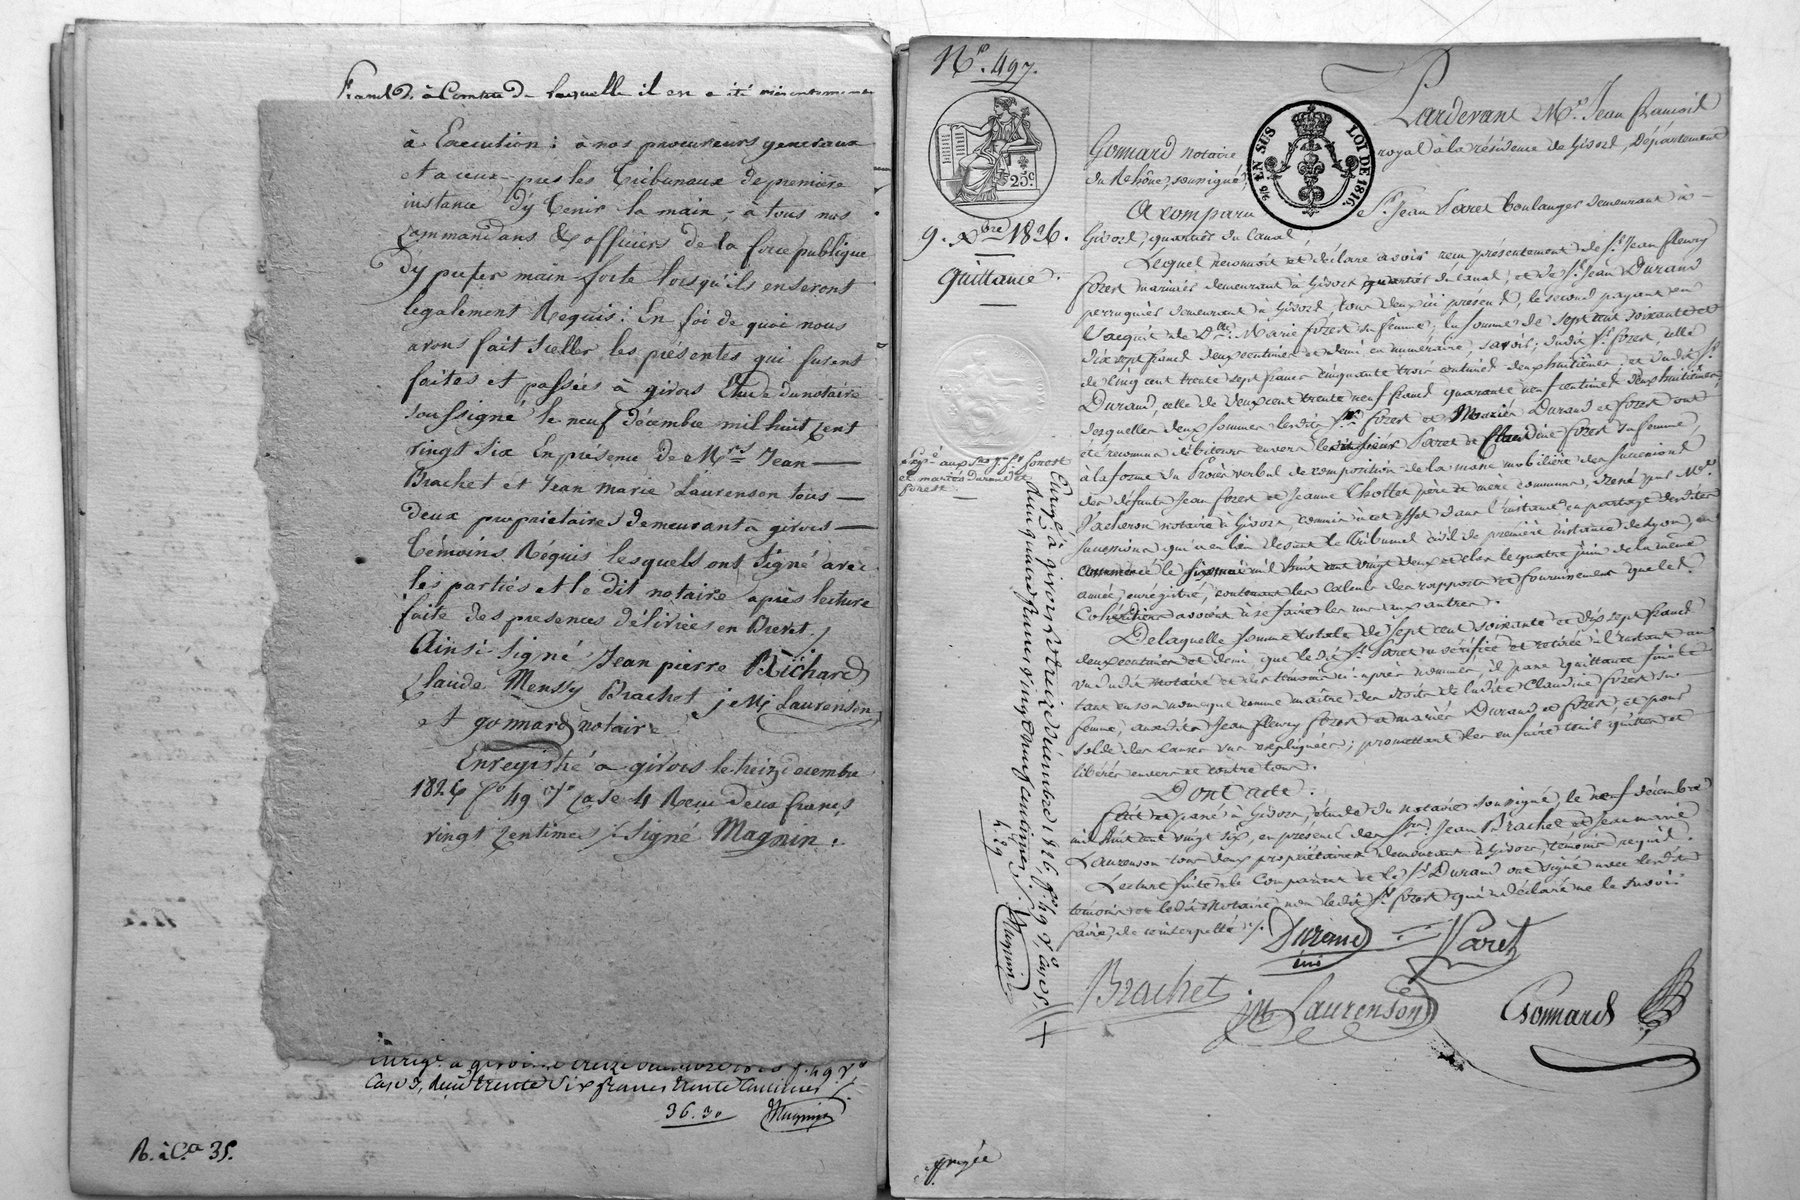 à Execution: à nos procureurs generaux
et a ceux pres les Tribunaux de première
instance dy Tenir la main, à tous nos
commandans & officiers de la force publique
dy preter main forte lorsqu'ils en seront
legalement Requis: En foi de quoi nous
avons fait sceller les présentes qui furent
faites et passées à givors Etude du notaire
soussigné le neuf décembre mil huit cent
vingt six En présence de Mrs Jean
Brachet et Jean marie Laurenson tous
deux propriétaires demeurant a givors
Témoins Réquis lesquels ont signé avec
les parties et le dit notaire après lecture
faite des presences délivrées en Brevet./
Ainsi signé Jean pierre Richard
Claude Brachet, j M Laurenson
et gonnard notaire
Enregistré a givors le treize décembre
1826 fo 49 Vo Case 4 Reçu deux francs
vingt Centimes signé Magnin.
Case 3, Reçu trente Six francs trente Centimes
36.30 Magnin
R. à C.a 35.
No. 497.
25c.
9. Xbre 1826.
Quittance.
EN SUS LOI DE 1816.
Pardevant Me. Jean François
Gonnard notaire royal à la résidence de Givors, Département
du Rhône, soussigné,
A comparu Sr. Jean Paret boulanger demeurant à
Givors, quartier du Canal,
Lequel reconnoit et déclare avoir reçu présentement de Sr. Jean fleury
forest marinier demeurant à Givors quartier du Canal, et de Sr. Jean Durand
perruquier demeurant à Givord, tous deux ici présens, le second payant en
l'acquit de Dlle. Marie forest sa femme, la somme de sept cent soixante et
dix sept francs deux centimes et demi en numéraire, savoir; dudit Sr. forest, celle
de cinq cent trente sept francs cinquante trois centimes deux huitièmes, et dudit Sr.
Durand, celle de deux cent trente neuf francs quarante neuf centimes deux huitièmes,
desquelles deux sommes lesdits Sr. forest et Mariés Durand et forest ont
été reconnus débiteurs envers Paret et Claudine forest sa femme,
à la forme du Procès verbal de composition de la masse mobilière des successions
des défunts Jean forest et Jeanne Chollet père et mère communs, dressé par Me.
notaire à Givors, commis à cet effet dans l'instance en partage desdites
successions qui a eu lieu devant le Tribunal civil de première instance de Lyon,
commencé le six mai mil huit cent vingt deux et clos le quatre juin de la même
année, enregistré, contenant les calculs des rapports et fournissemens que les
Cohéritiers avoient à se faire les uns aux autres.
De laquelle somme totale de sept cent soixante et dix sept francs
deux centimes et demi, que ledit Sr. Paret a vérifiée et retirée à l'instant au
vu dudit Notaire et des témoins ci-après nommés, il passe quittance finale
tant en son nom que comme maître des droits de ladite Claudine forest sa
femme, auxdits Jean fleury forest et mariés Durand et forest, et pour
solde des causes sus expliquées; promettant les en faire tenir quittes et
libérés envers et contre tous.
Dont acte.
fait et passé à Givors, étude du notaire soussigné, le neuf décembre
mil huit cent vingt six, en présence des Srs. Jean Brachet et Jean marie
Laurenson tous deux propriétaires demeurant à Givors, témoins requis.
Lecture faite le Comparant et le Sr. Durand ont signé avec lesdits
témoins et ledit Notaire, non ledit Sr. forest qui a déclaré ne le savoir
faire, de ce interpellé ./.
Durand
Paret
Brachet
jM Laurenson
Gonnard
Enregé. à givors le treize décembre 1826 fo. 49 Vo. Case 5.
Reçu quatre francs vingt neuf centimes ./.
4.29
Magnin